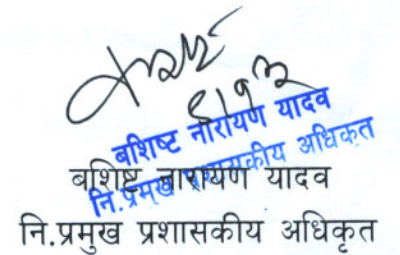 बशिष्ट नारायण यादव
नि.प्रमुख प्रशासकीय अधिकृत
बशिष्ट नारायण यादव
नि.प्रमुख प्रशासकीय अधिकृत